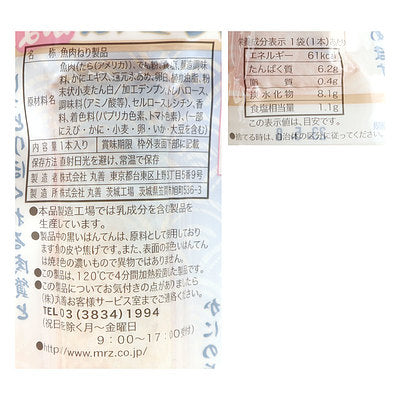 名 称 魚肉ねり製品
原材料名
魚肉(たら(アメリカ))、でん粉、食塩、醸造調味
料、かにエキス、還元水あめ、卵白、植物油脂、粉
末状小麦たん白/加工デンプン、トレハロース、
調味料(アミノ酸等)、セルロース、レシチン、香
料、着色料(パプリカ色素、トマト色素)、(一部
にえび・かに・小麦・卵・いか・大豆を含む)
内容量 1本入り 賞味期限 枠外表面下部に記載
保存方法 直射日光を避け、常温で保存
製造者 株式会社 丸善 東京都台東区上野1丁目5番9号
製造所 株式会社 丸善 茨城工場 茨城県笠間市
●本品製造工場では乳成分を含む製品を
生産しています。
●製品中の黒いはんてんは、原料として使用しており
ます魚の皮や焦げです。また、表面の茶色いはんてん
は焼き色の濃いもので異物ではありません。
●この製品は、120℃で4分間加熱殺菌した製品です。
●この製品についてお気付きの点がありましたら
(株)丸善お客様サービス室までご連絡ください。
TEL 03(3834)1994
(祝日を除く月〜金曜日
9:00〜17:00受付)
●http://www.mrz.co.jp/
栄養成分表示 1袋(1本)あたり
エネルギー 61kcal
たんぱく質 6.2g
脂質 0.4g
炭水化物 8.1g
食塩相当量 1.1g
この表示値は、目安です。
●捨てる時は、自治体の区分に従ってください。